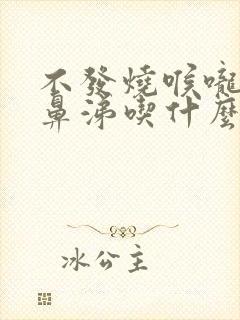 不發燒喉嚨
鼻涕喫什麼
冰公主